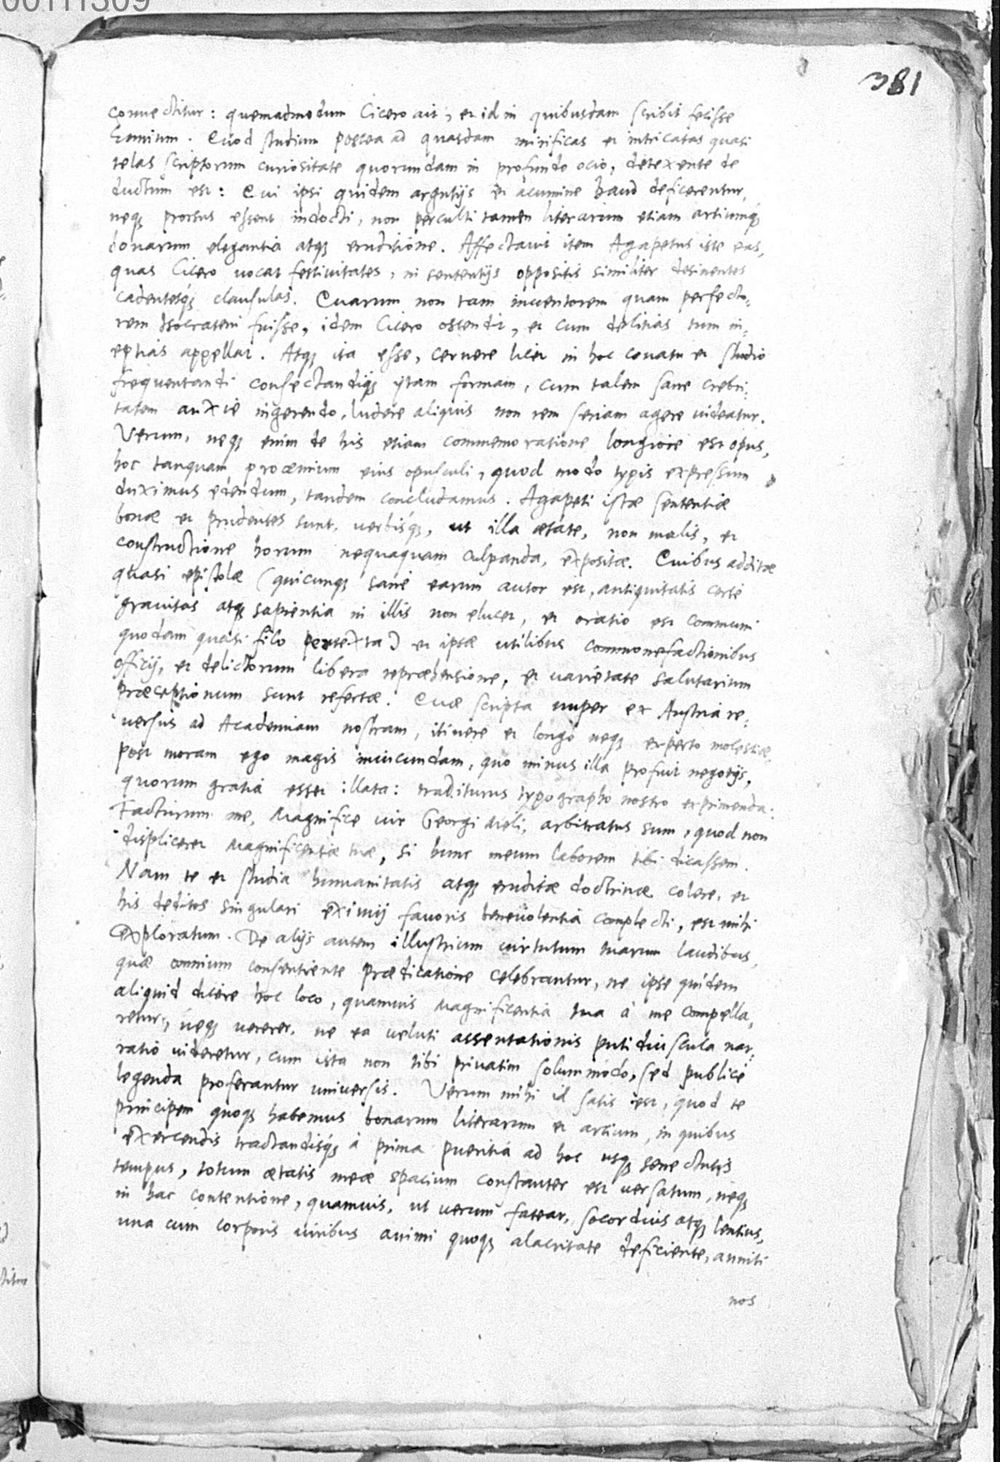 00111309
381
connectitur: quemadmodum Cicero ait, et id in quibusdam scribit fecisse
Ennium. Quod studium postea ad quasdam mirificas et intricatas quasi
telas scriptorum curiositate quorundam in profundo ocio, detexente de
ductum est: Qui ipsi quidem argutijs et acumine haud deficerentur,
neq; prorsus essent indocti, non perculti tamen literarum etiam artiumq;
bonarum elegantia atq; eruditione. Affectavit item Agapetus iste eas,
quas Cicero vocat festivitates, in sententijs oppositis similiter desinentes
cadentesq; clausulas. Quarum non tam inventorem quam perfecto,
rem Isocratem fuisse, idem Cicero ostendit, et cum delitias tum in,
eptias appellat. Atq; ita esse, cernere licet in hoc conatu et studio
frequentandi consectandiq; istam formam, cum talem sane crebri,
tatem anxie ingerendo, ludere aliquis non rem seriam agere videatur.
Verum, neq; enim de his etiam commemoratione longiore est opus,
hoc tanquam prooemium eius opusculi, quod modo typis expressum
duximus edendum, tandem concludamus. Agapeti istae sententiae
bonae et prudentes sunt, verbisq;, ut illa aetate, non malis, et
constructione horum nequaquam culpanda, expositae. Quibus additae
quasi epistolae (quicunq; sane earum autor est, antiquitatis certe
gravitas atq; sapientia in illis non elucet, et oratio est communi
quodam quasi filo pertexta) et ipsae utilibus commonefactionibus
officij, et delictorum libera repraehensione, et varietate salutarium
praeceptionum sunt refertae. Quae scripta nuper ex Austria re,
versus ad Academiam nostram, itinere et longo neq; experto molestiae,
post moram ego magis iniucundam, quo minus illa profuit negotijs,
quorum gratia esset illata: traditurus typographo nostro exprimenda.
Facturum me, Magnifice vir Georgi Meli, arbitratus sum, quod non
displiceret Magnificentiae tuae, si hunc meum laborem tibi dicassem.
Nam te et studia humanitatis atq; eruditae doctrinae colere, et
his deditos singulari eximij favoris benevolentia complecti, est mihi
exploratum. De alijs autem illustrium virtutum tuarum laudibus,
quae omnium consentiente praedicatione celebrantur, ne ipse quidem
aliquid dicere hoc loco, quamvis Magnificentia tua à me compella,
retur, neq; vererer, ne ea veluti assentationis putidiuscula nar,
ratio videretur, cum ista non tibi privatim solummodo, sed publice
legenda proferantur universis. Verum mihi id satis est, quod te
principem quoq; habemus bonarum literarum et artium, in quibus
exercendis tractandisq; à prima pueritia ad hoc usq; senectutis
tempus, totum aetatis meae spacium constanter est versatum, neq;
in hac contentione, quamvis, ut verum fatear, socordius atq; lentius,
una cum corporis viribus animi quoq; alacritate deficiente, anniti
nos